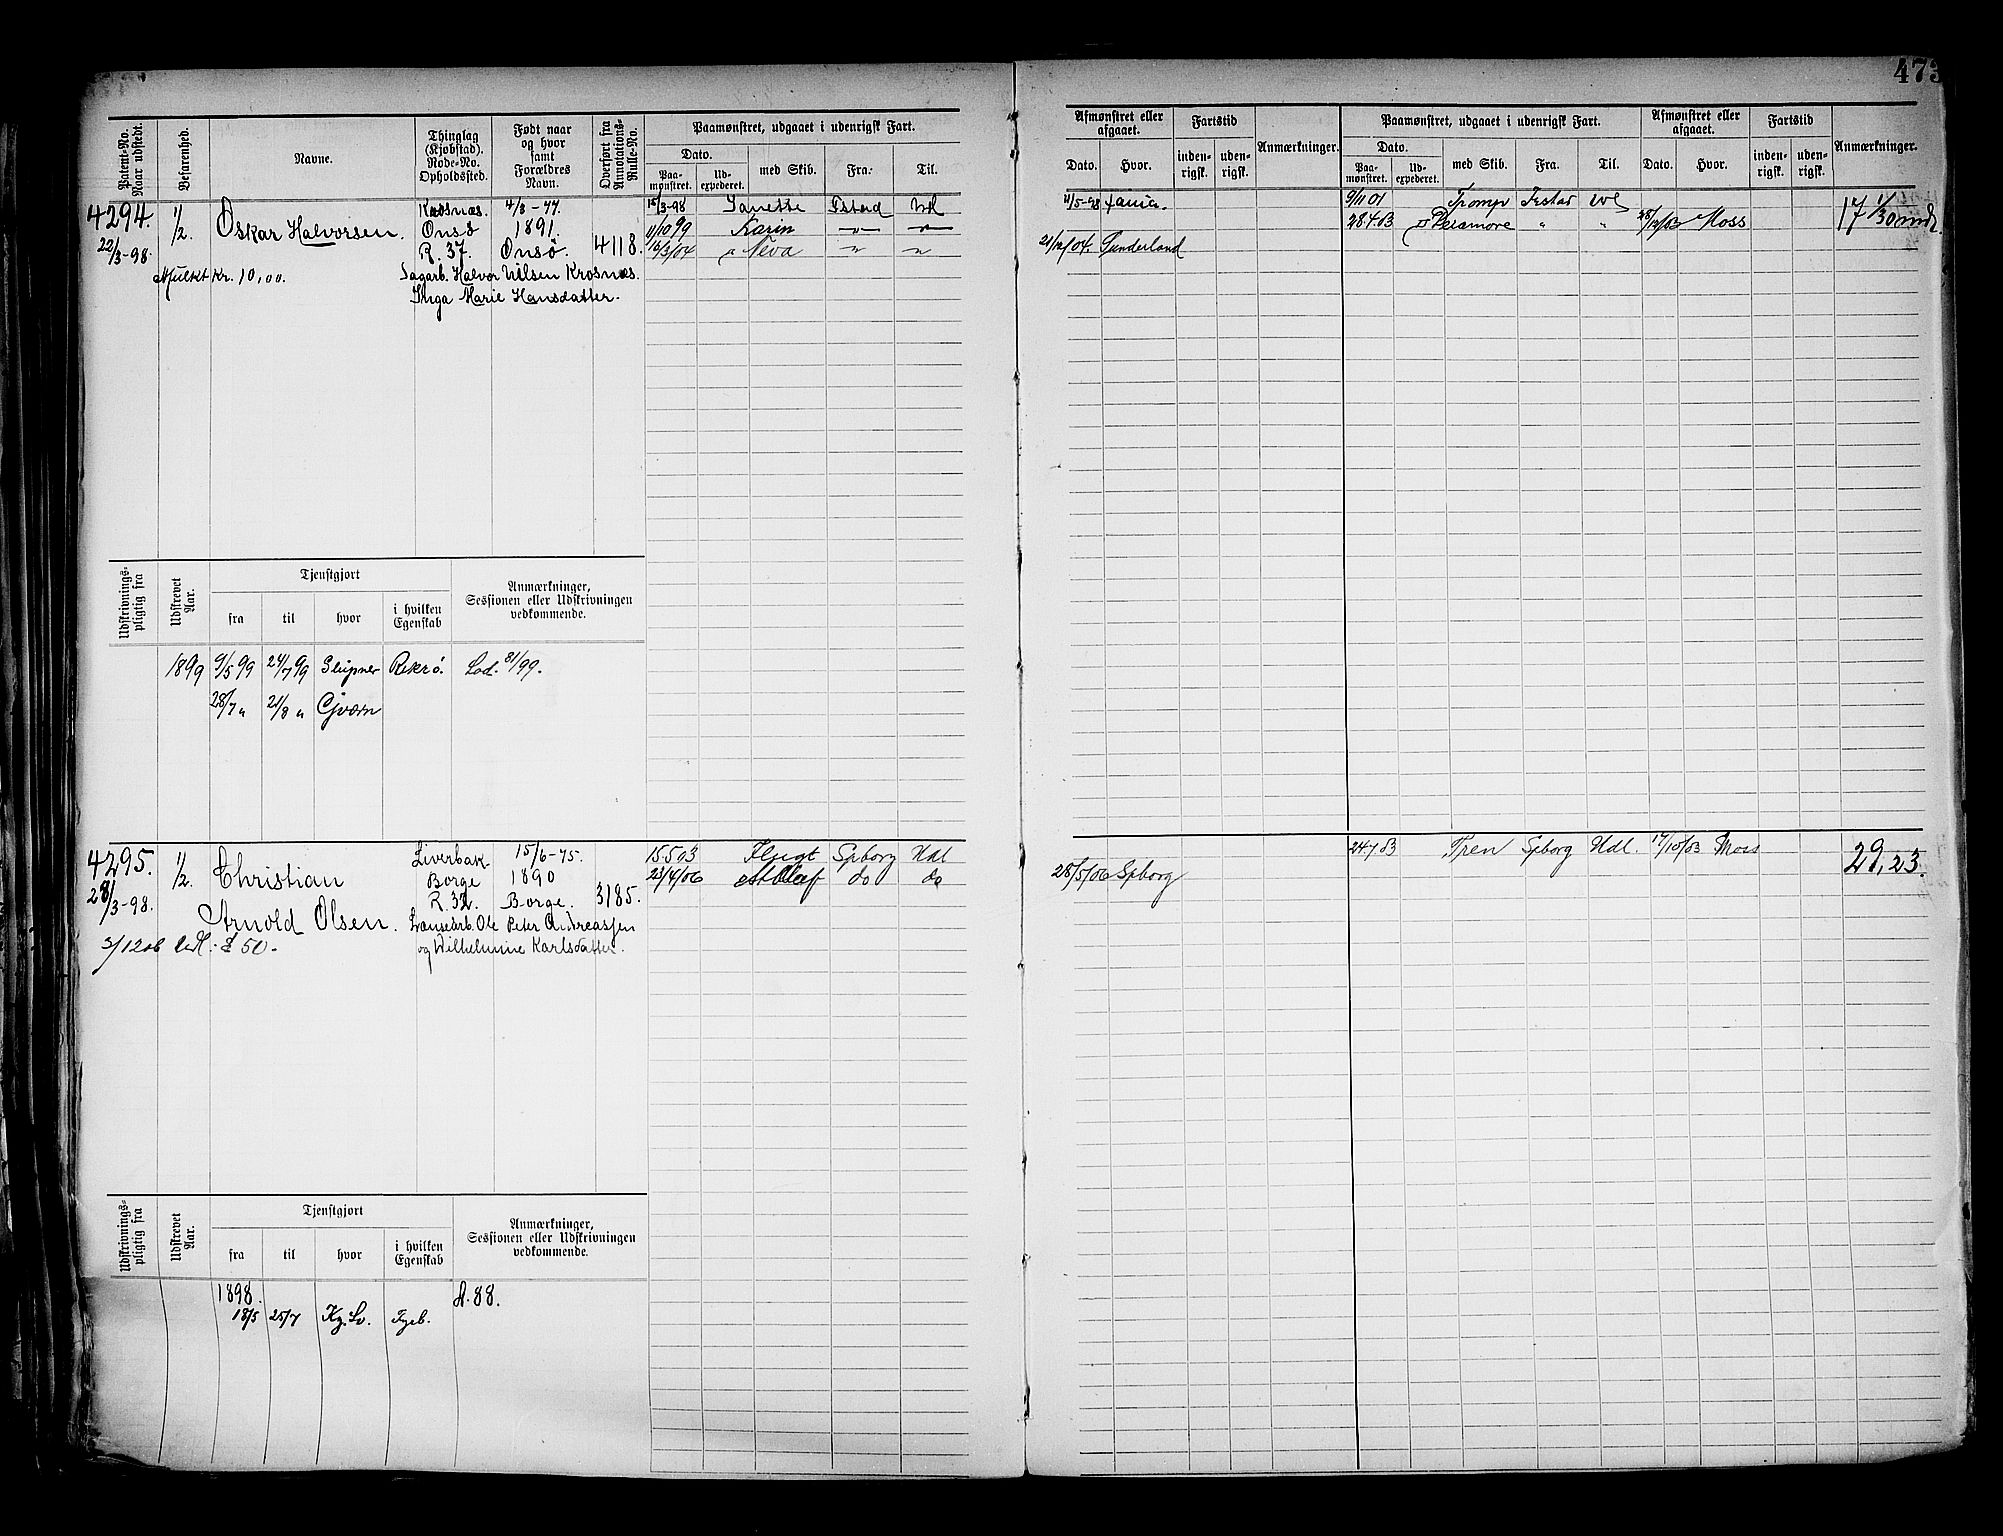 473
Patent-No. Naar udstedt.
Befarenhed.
Navne.
Thinglag (Kjøbstad). Rode-No. Opholdssted.
Født naar og hvor samt Forældres Navn.
Overført fra Annotations-Rulle-No.
Paamønstret, udgaaet i udenrigsk Fart.
Dato.
Paa-mønstret.
Ud-expederet.
med Skib.
Fra.
Til.
Afmønstret eller afgaaet.
Dato.
Hvor.
Fartstid
inden-rigsk.
uden-rigsk.
Anmærkninger.
Paamønstret, udgaaet i udenrigsk Fart.
Dato.
Paa-mønstret.
Ud-expederet.
med Skib.
Fra.
Til.
Afmønstret eller afgaaet.
Dato.
Hvor.
Fartstid
inden-rigsk.
uden-rigsk.
Anmærkninger.
4294.
22/3-98.
1/2.
Oskar Halvorsen.
Mulkt Kr. 10,00.
Krosnæs.
Onsø
R. 37.
4/3-77.
1891.
Onsø.
4118.
Sagarb. Halvor Nilsen Krosnæs.
Inga Marie Hansdatter.
15/3-98
11/10 99 Karin
16/3/04 " Neva
11/5-98
21/12/04. Sunderland
9/11 01 Tromp
28.4.03 " " 28/12/03 Moss
17 1/30 mndr
Udskrivnings-pligtig fra
Udskrevet Aar.
Tjenstgjort
fra
til
hvor
i hvilken Egenskab
Anmærkninger, Sessionen eller Udskrivningen vedkommende.
1899 9/5 99 24/7 99 Sleipner Rekrø. Lod. 81/99.
28/7 " 21/8 "
4295.
28/3-98.
1/2.
Christian
Arnold Olsen.
3/12 06 £ 50.
Liverbak
Borge
R. 32.
15/6-75.
1890
Borge.
3185.
Ole Peter Andreassen
og Wilhelmine Karlsdatter.
15.5 03 Flugt Spborg Udl
23/4/06 do do
28/5/06 Spborg
Spborg Udl. 17/10/03 Moss
29,23.
Udskrivnings-pligtig fra
Udskrevet Aar.
Tjenstgjort
fra
til
hvor
i hvilken Egenskab
Anmærkninger, Sessionen eller Udskrivningen vedkommende.
1898.
18/5 25/7
88.